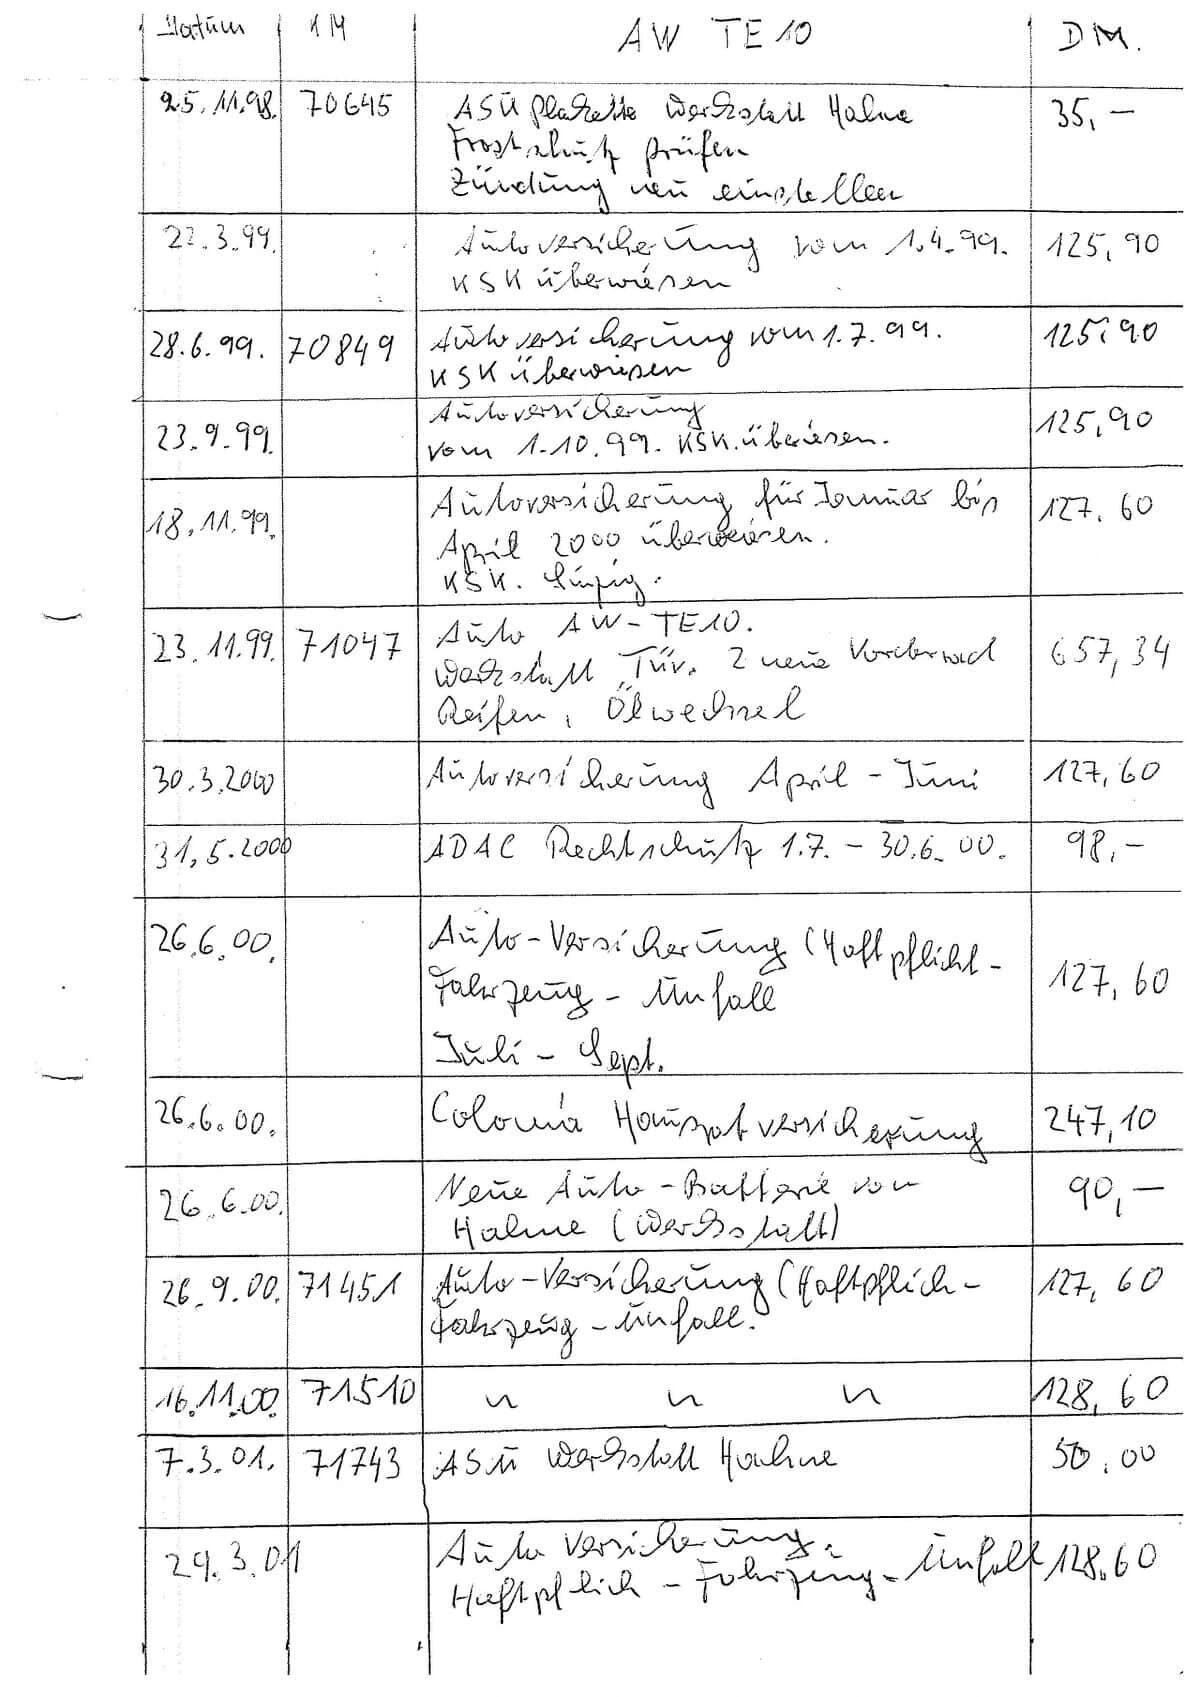 Datum KM AW TE 10 DM.
25.11.98. 70645 ASU Plakette Werkstatt Hahne 35,-
Frostschutz prüfen
Zündung neu einstellen
22.3.99. Autoversicherung vom 1.4.99. 125,90
KSK überwiesen
28.6.99. 70849 Autoversicherung vom 1.7.99. 125,90
KSK überwiesen
Autoversicherung
23.9.99. vom 1.10.99. KSK. überiesen. 125,90
18.11.99. Autoversicherung für Januar bis 127.60
April 2000 überweisen.
KSK. Sinzig.
23.11.99. 71047 Auto AW-TE10. 657,34
Werkstatt Tüv. 2 neue Vorderrad
Reifen, Ölwechsel
30.3.2000 Autoversicherung April - Juni 127,60
31.5.2000 ADAC Rechtschutz 1.7. - 30.6.00. 98,-
26.6.00. Auto-Versicherung (Haftpflicht-
Fahrzeug - Unfall 127,60
Juli - Sept.
26.6.00. Colonia Hausratversicherung 247,10
26.6.00. Neue Auto-Batterie von 90,-
Hahne (Werkstatt)
26.9.00. 71451 Auto-Versicherung (Haftpflich- 127,60
Fahrzeug - Unfall.
16.11.00. 71510 " " " 128,60
7.3.01. 71743 ASU Werkstatt Hahne 50.00
29.3.01 Auto Versicherung. 128.60
Haftpflich - Fahrzeug - Unfall